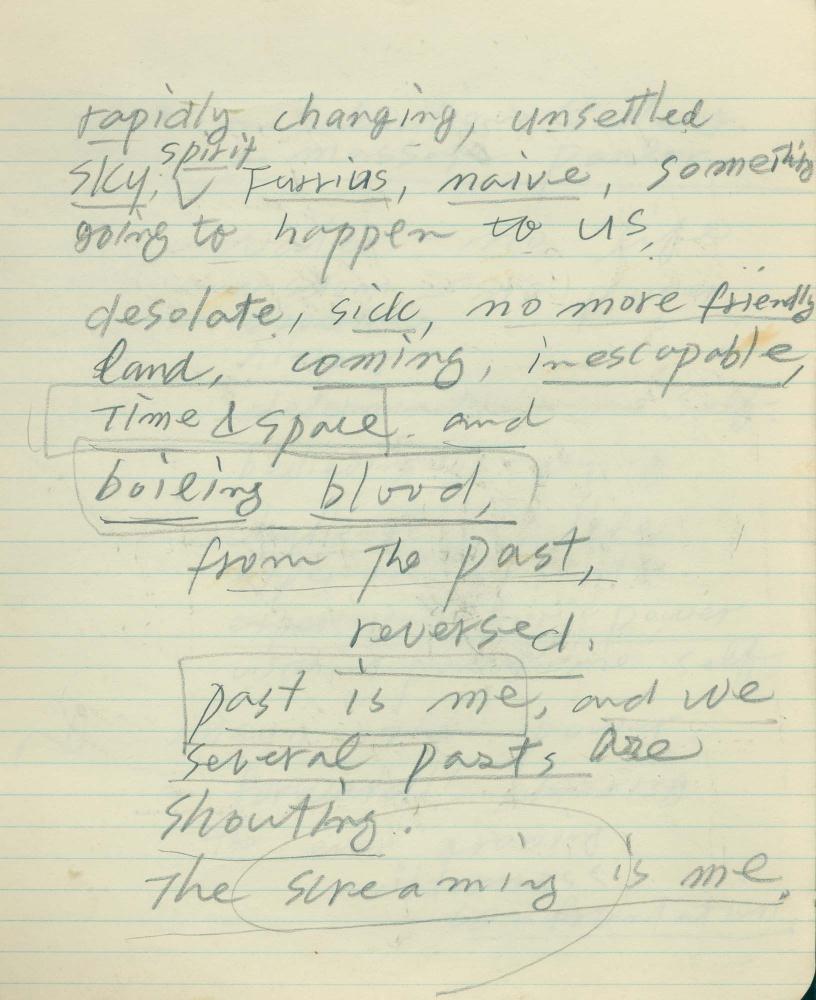 rapidly changing, unsettled
sky, spirit Furrius, naive, something
going to happen to us,
desolate, sick, no more friendly
land, coming, inescapable,
Time & space. and
boiling blood,
from The past,
reversed.
past is me, and we
several pasts are
shouting.
The screaming is me.